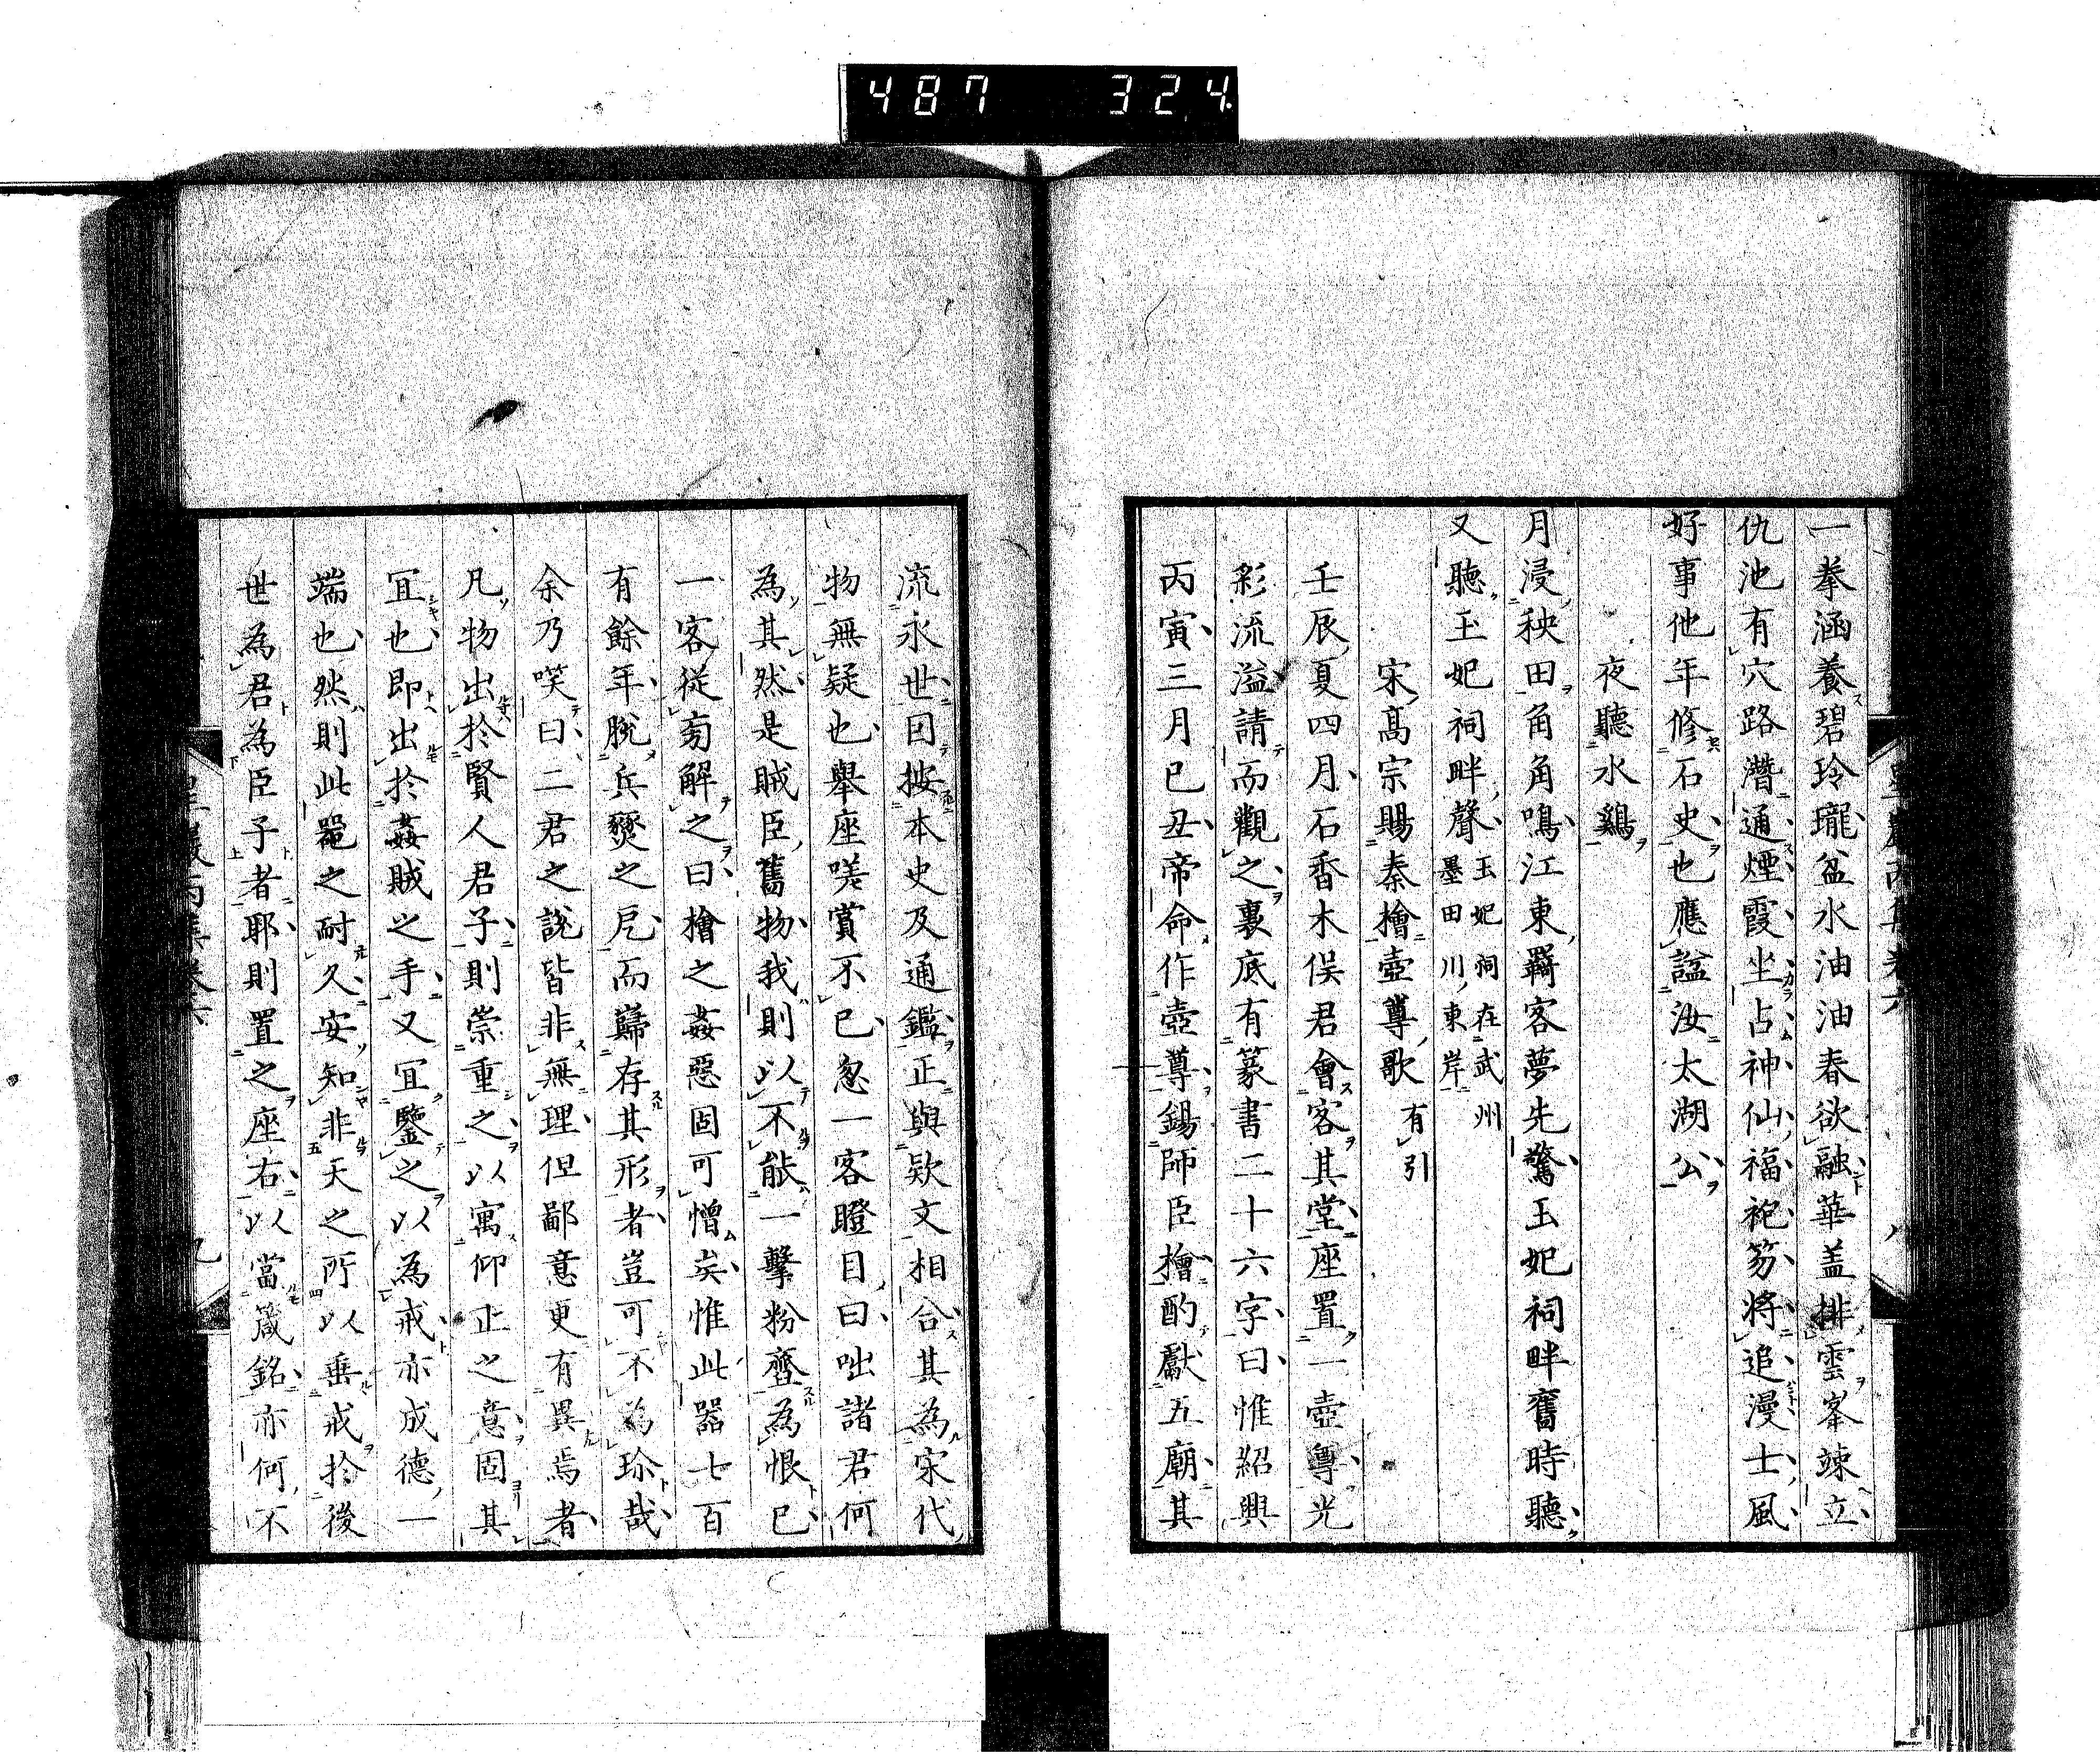 487 324
一拳涵養碧玲瓏盆水油油春欲融華盖排雲峯竦立
仇池有穴路潛通煙霞坐占神仙福袍笏將追漫士風
好事他年修石史也應諡汝太湖公
夜聽水鷄
月浸秧田角角鳴江東羇客夢先驚玉妃祠畔舊時聽
又聽玉妃祠畔聲玉妃祠在武州墨田川東岸
宋高宗賜秦檜壺尊歌有引
壬辰夏四月石香木俣君會客其堂座置一壺尊光
彩流溢請而觀之裏底有篆書二十六字曰惟紹興
丙寅三月已丑帝命作壺尊錫師臣檜酌獻五廟其
流永世因按本史及通鑑正與欵文相合其為宋代
物無疑也舉座嗟賞不已忽一客瞪目曰咄諸君何
為其然是賊臣舊物我則以不能一擊粉齏為恨已
一客從旁解之曰檜之姦惡固可憎矣惟此器七百
有餘年脫兵燹之厄而歸存其形者豈可不為珍哉
余乃笑曰二君之說皆非無理但鄙意更有異焉者
凡物出於賢人君子則崇重之以寓仰止之意固其
宜也即出於姦賊之手又宜鑒之以為戒亦成德一
端也然則此器之耐久安知非天之所以垂戒於後
世為君為臣子者耶則置之座右以當箴銘亦何不